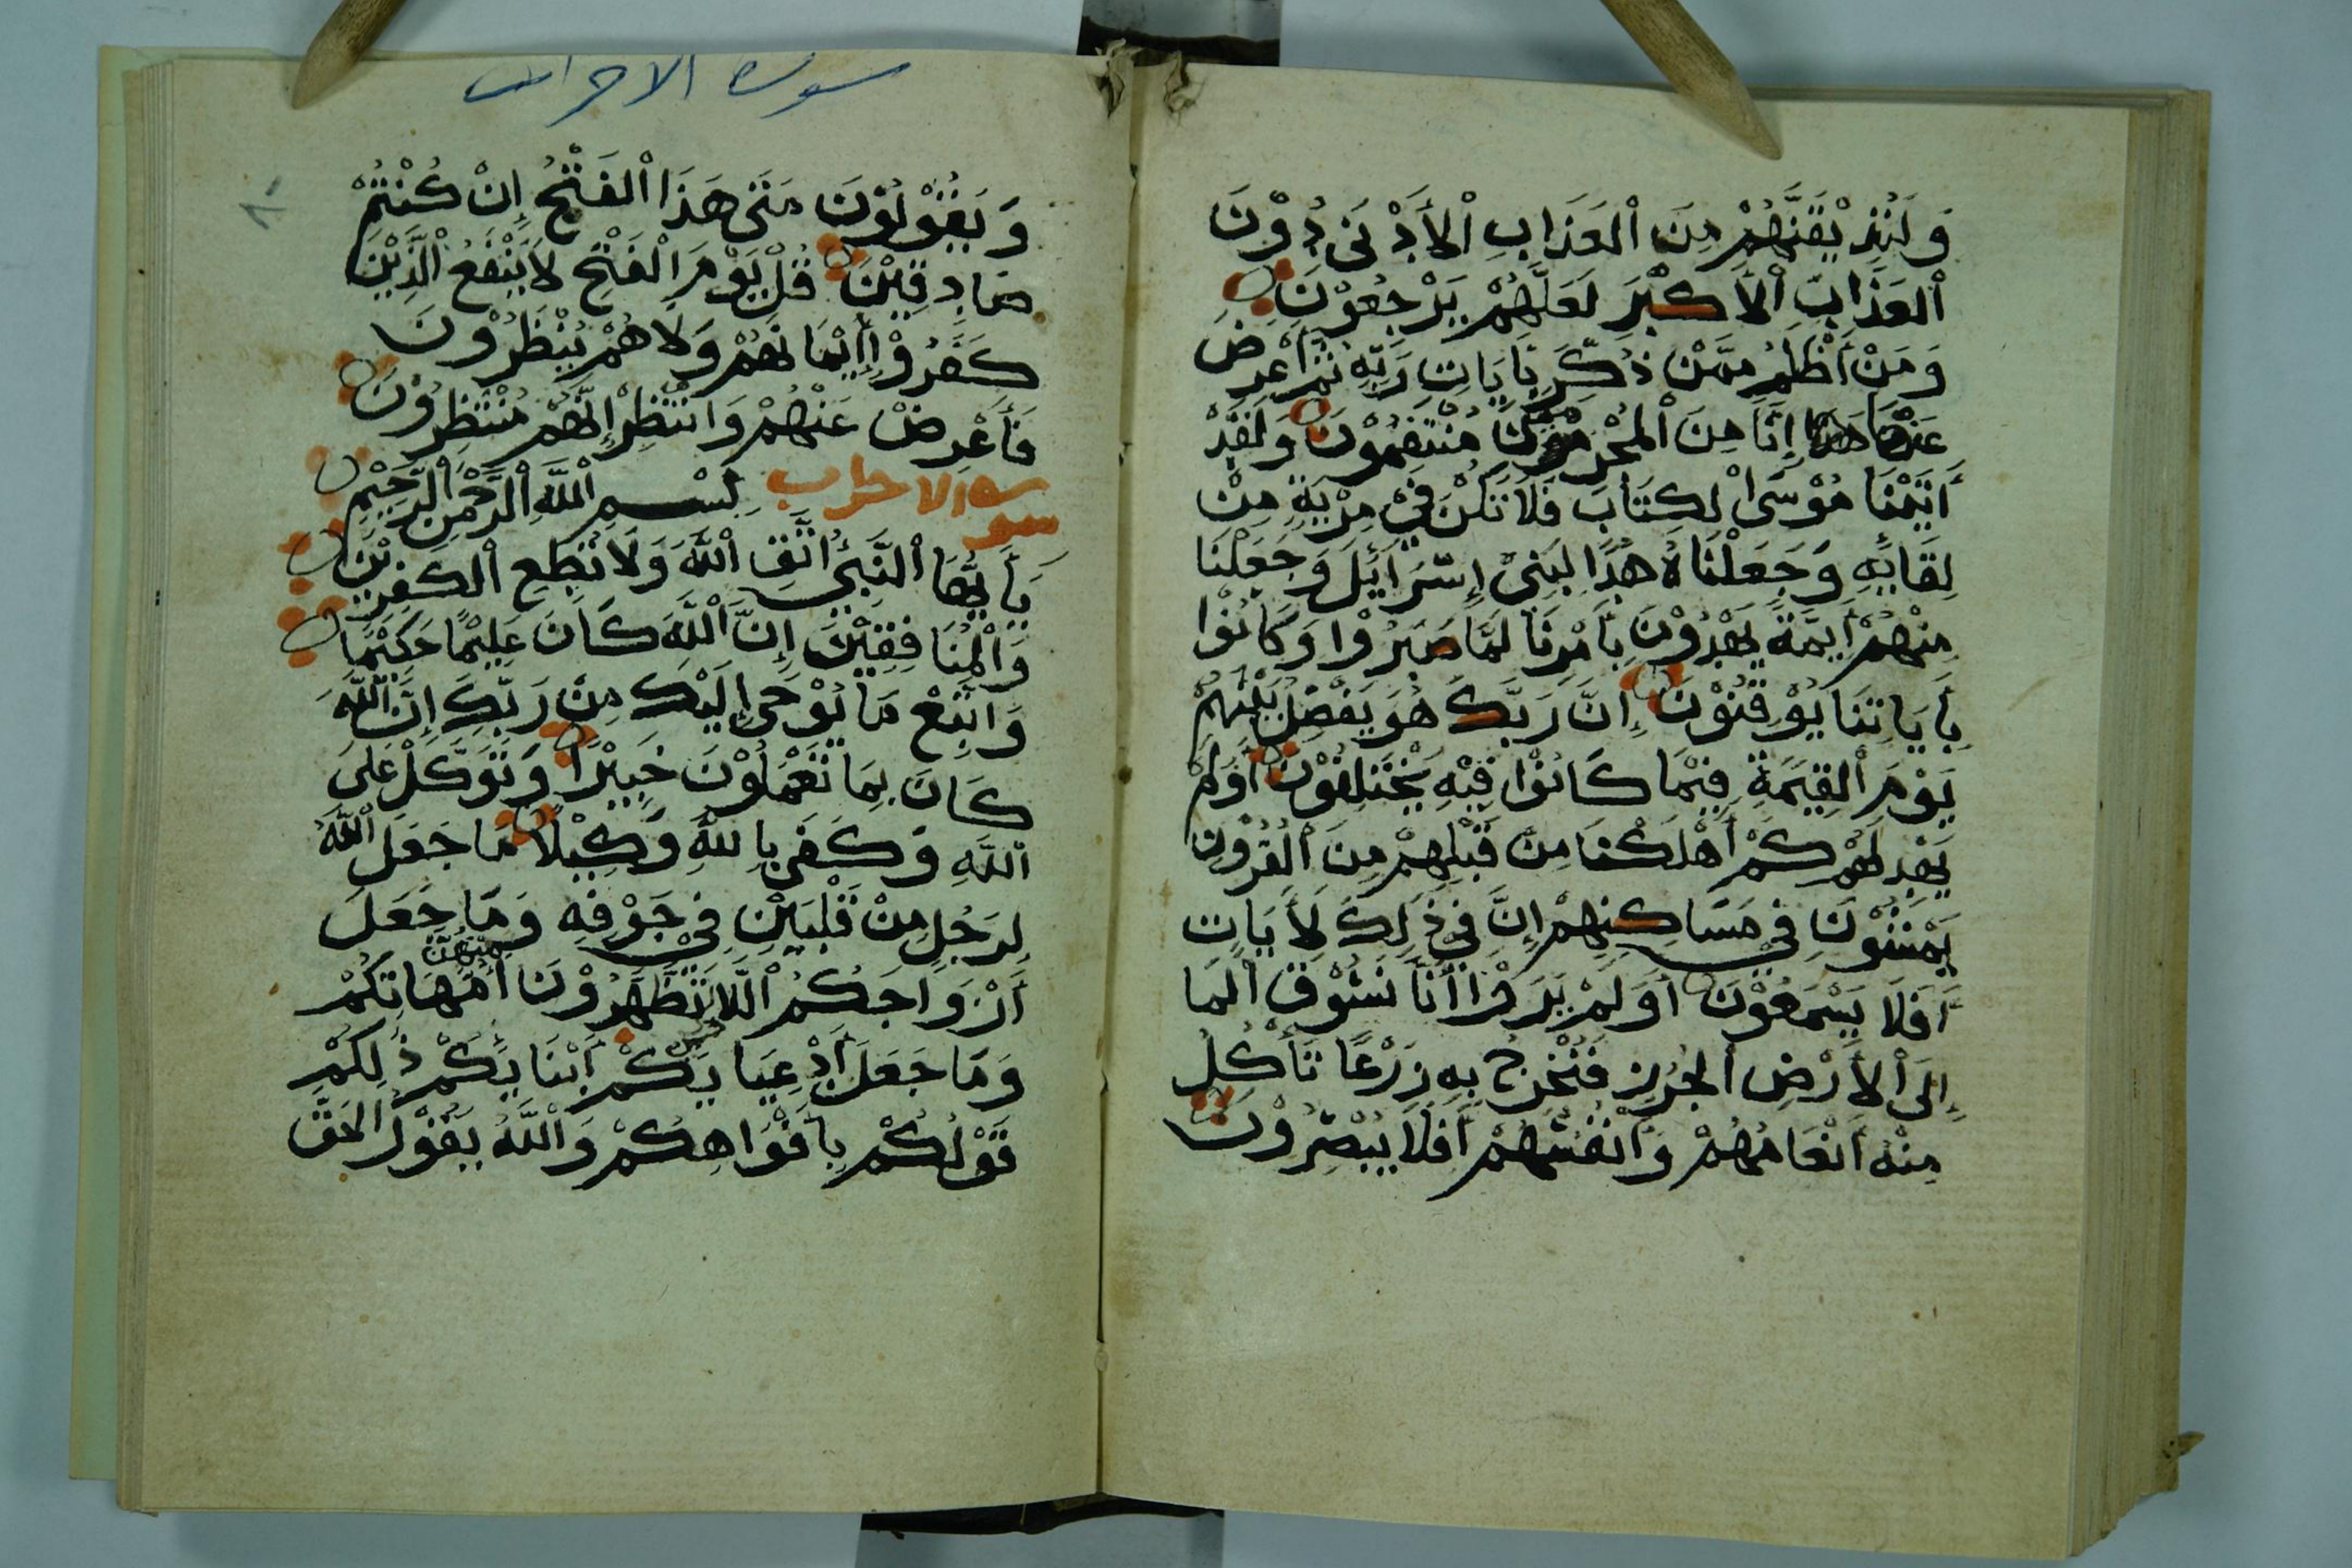 وَلَنُذِيْقَنَّهُمْ مِنَ الْعَذَابِ الْأَدْنَى دُوْنَ
الْعَذَابِ الْأَكْبَرِ لَعَلَّهُمْ يَرْجِعُوْنَ
وَمَنْ أَظْلَمُ مِمَّنْ ذُكِّرَ بِأَيَاتِ رَبِّهِ ثُمَّ أَعْرَضَ
عَنْهَا إِنَّا مِنَ الْمُجْرِمِيْنَ مُنْتَقِمُوْنَ وَلَقَدْ
أَتَيْنَا مُوْسَى الْكِتَابَ فَلَا تَكُنْ فِيْ مِرْيَةٍ مِنْ
لِقَايِهِ وَجَعَلْنَاهُ هُدًا لِبَنِيْ إِسْرَايِٕلَ وَجَعَلْنَا
مِنْهُمْ أَيِمَّةً يَهْدُوْنَ بِأَمْرِنَا لَمَّا صَبَرُوْا وَكَانُوْا
بِأَيَاتِنَا يُوْقِنُوْنَ إِنَّ رَبَّكَ هُوَ يَفْصِلُ بَيْنَهُمْ
يَوْمَ الْقِيَمَةِ فِيْمَا كَانُوْا فِيْهِ يَخْتَلِفُوْنَ أَوَلَمْ
يَهْدِ لَهُمْ كَمْ أَهْلَكْنَا مِنْ قَبْلِهِمْ مِنَ الْقُرُوْنِ
يَمْشُوْنَ فِيْ مَسَاكِنِهِمْ إِنَّ فِيْ ذَلِكَ لَأَيَاتٍ
أَفَلَا يَسْمَعُوْنَ أَوَلَمْ يَرَوْا أَنَّا نَسُوْقُ الْمَا
إِلَى الْأَرْضِ الْجُرُزِ فَنُخْرِجُ بِهِ زَرْعًا تَأْكُلُ
مِنْهُ أَنْعَامُهُمْ وَأَنْفُسُهُمْ أَفَلَا يُبْصِرُوْنَ
سورة الاحزاب
٨٠
وَيَقُوْلُوْنَ مَتَى هَذَا الْفَتْحُ إِنْ كُنْتُمْ
صَادِقِيْنَ قُلْ يَوْمَ الْفَتْحِ لَا يَنْفَعُ الَّذِيْنَ
كَفَرُوْا إِيْمَانُهُمْ وَلَا هُمْ يُنْظَرُوْنَ
فَأَعْرِضْ عَنْهُمْ وَانْتَظِرْ إِنَّهُمْ مُنْتَظِرُوْنَ
سورة الاحزاب بِسْمِ اللَّهِ الرَّحْمَنِ الرَّحِيْمِ
يَأَيُّهَا النَّبِيُّ اتَّقِ اللَّهَ وَلَا تُطِعِ الْكَفِرِيْنَ
وَالْمُنَافِقِيْنَ إِنَّ اللَّهَ كَانَ عَلِيْمًا حَكِيْمًا
وَاتَّبِعْ مَا يُوْحَى إِلَيْكَ مِنْ رَبِّكَ إِنَّ اللَّهَ
كَانَ بِمَا تَعْمَلُوْنَ خَبِيْرًا وَتَوَكَّلْ عَلَى
اللَّهِ وَكَفَى بِاللَّهِ وَكِيْلًا مَا جَعَلَ اللَّهُ
لِرَجُلٍ مِنْ قَلْبَيْنِ فِيْ جَوْفِهِ وَمَا جَعَلَ
أَزْوَاجَكُمُ اللَّا تَظَّهَّرُوْنَ مِنْهُنَّ أُمَّهَاتِكُمْ
وَمَا جَعَلَ أَدْعِيَايَكُمْ أَبْنَايَكُمْ ذَلِكُمْ
قَوْلُكُمْ بِأَفْوَاهِكُمْ وَاللَّهُ يَقُوْلُ الْحَقَّ